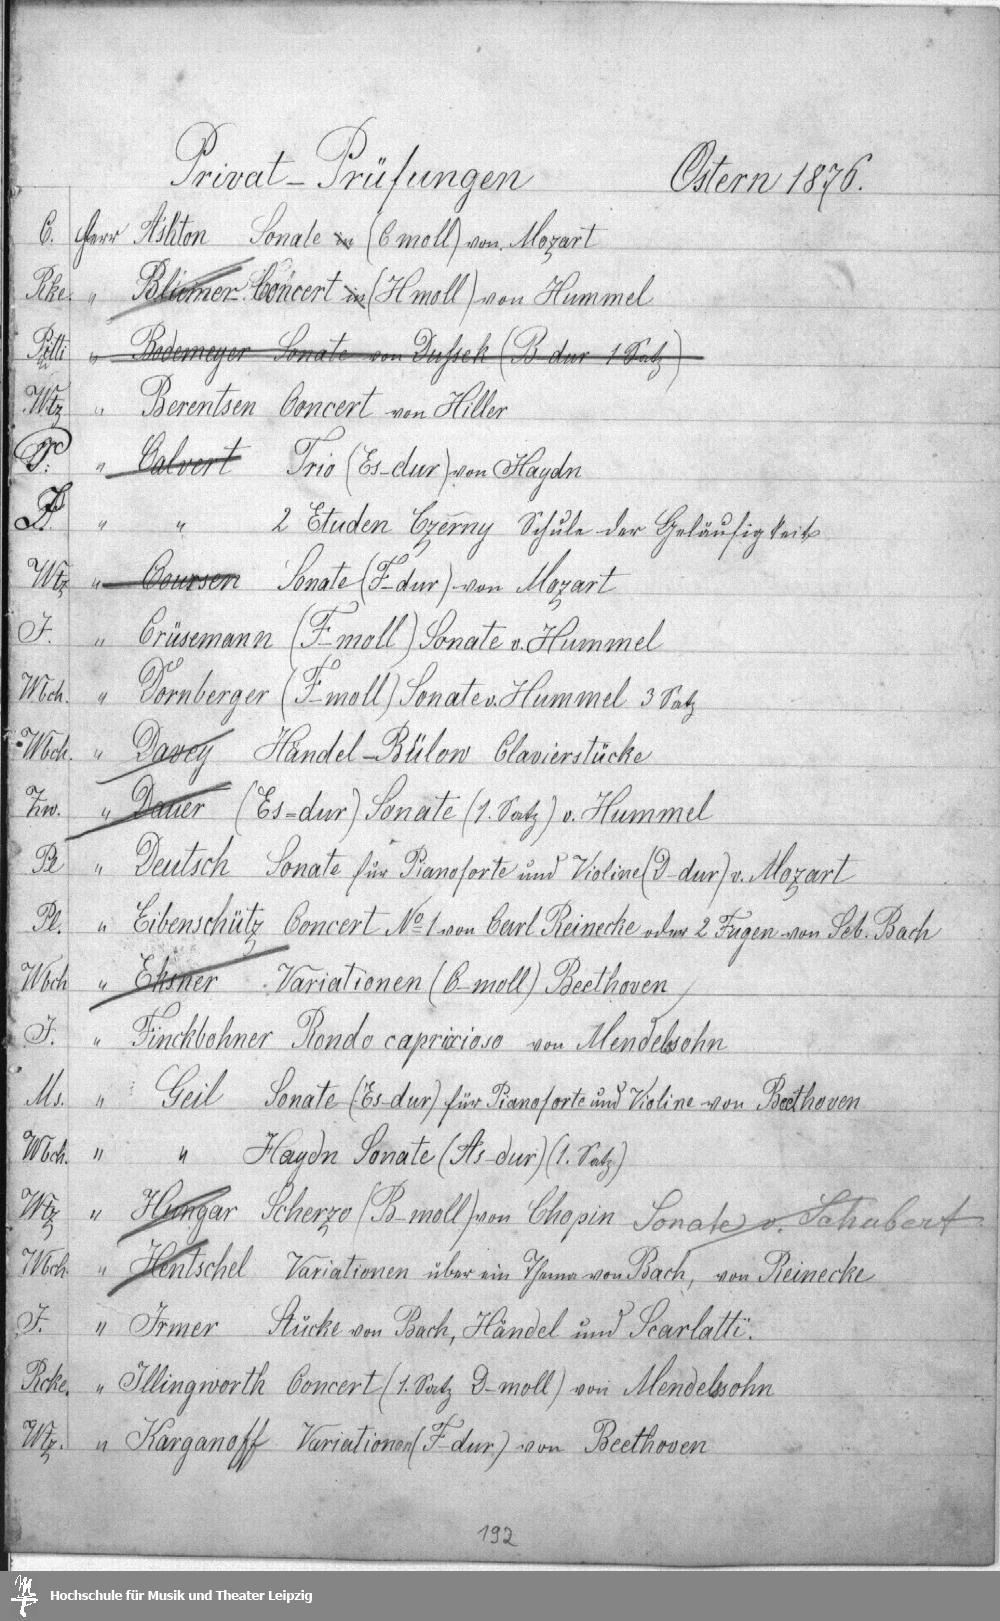 Privat-Prüfungen Ostern 1876.
C. Herr Ashton Sonate in (C moll) von Mozart
Rcke. " Blümer Concert in (H moll) von Hummel
" Bodemeyer Sonate von Dussek (B-dur 1. Satz)
Wtz " Berentsen Concert von Hiller
" Calvert Trio (Es-dur) von Haydn
" " 2 Etuden Czerny Schule der Geläufigkeit
Wtz " Coursen Sonate (F-dur) von Mozart
J. " Crüsemann (F-moll) Sonate v. Hummel
Wbch. " Dornberger (F-moll) Sonate v. Hummel 3 Satz
Wbch. " Davey Händel-Bülow Clavierstücke
Zw. " Dauer (Es=dur) Sonate (1. Satz) v. Hummel
Pl " Deutsch Sonate für Pianoforte und Violine (D-dur) v. Mozart
Pl. " Eibenschütz Concert No 1 von Carl Reinecke oder 2 Fugen von Seb. Bach
Wbch " Eksner Variationen (C-moll) Beethoven
J. " Finckbohner Rondo caprixioso von Mendelssohn
Ms. " Geil Sonate (Es-dur) für Pianoforte und Violine von Beethoven
Wbch. " " Haydn Sonate (As-dur) (1. Satz)
Wtz " Hungar Scherzo (B-moll) von Chopin Sonate v. Schubert
Wbch " Hentschel Variationen über ein Thema von Bach, von Reinecke
J. " Irmer Stücke von Bach, Händel und Scarlatti.
Rcke. " Illingworth Concert (1. Satz D-moll) von Mendelssohn
Wtz. " Karganoff Variationen (F-dur) von Beethoven
192
Hochschule für Musik und Theater Leipzig